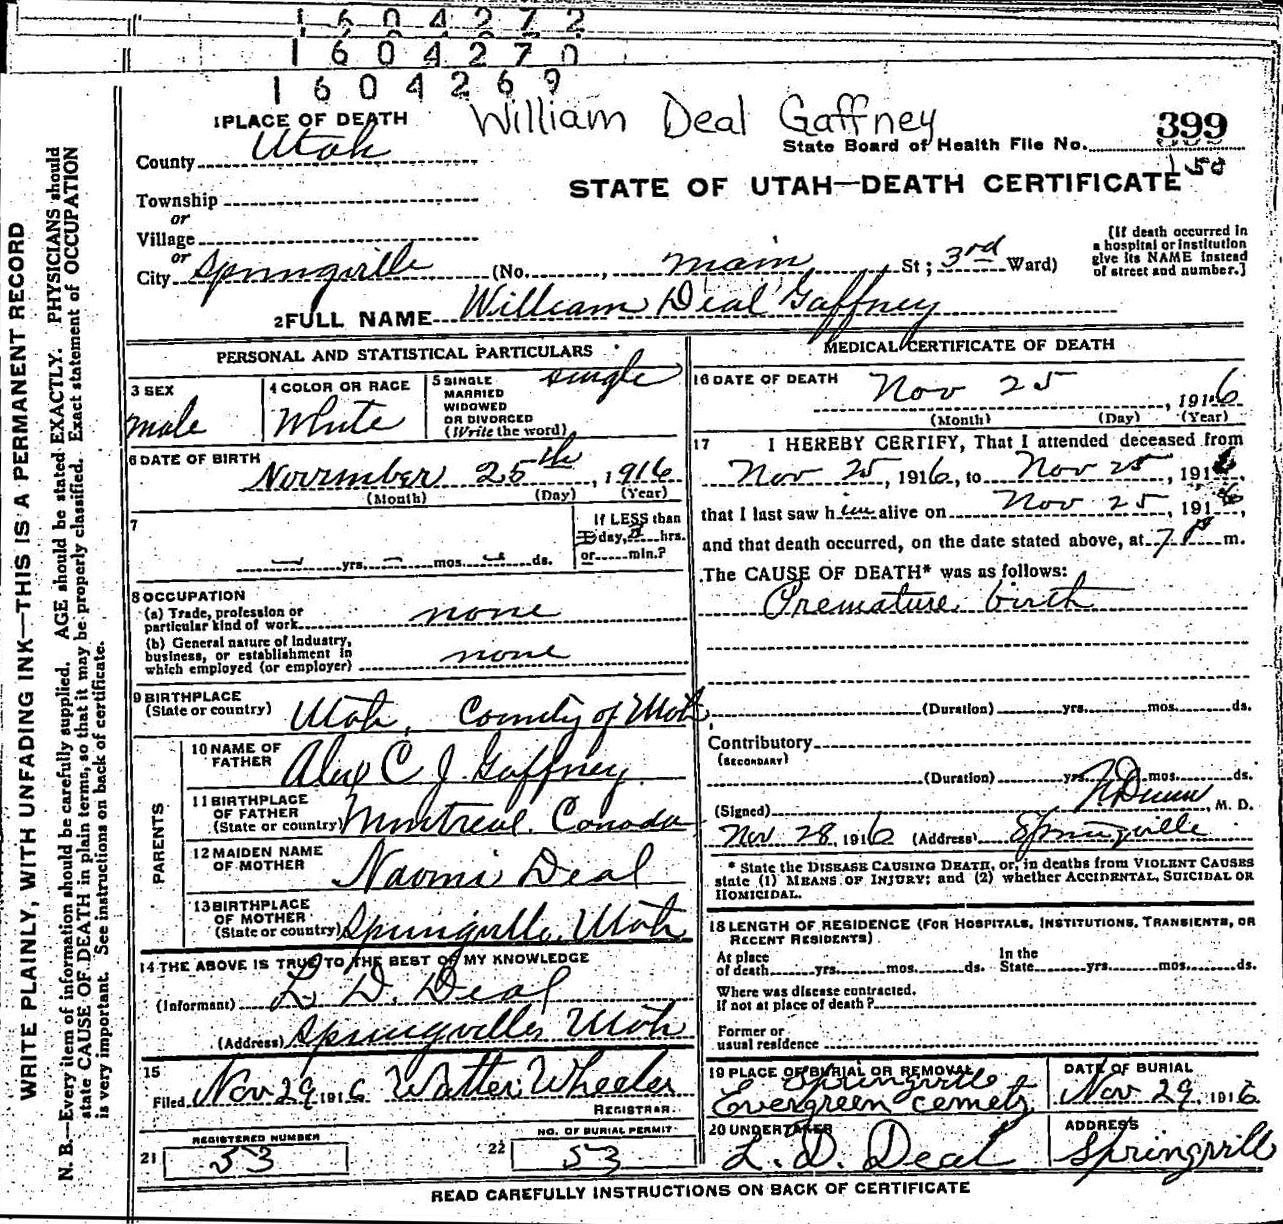 1604272
1604270
1604269
1 PLACE OF DEATH
William Deal Gaffney
399
County Utah
State Board of Health File No.
150
STATE OF UTAH—DEATH CERTIFICATE
Township
or
Village
or
City Springville (No. , Main St; 3rd Ward)
[If death occurred in
a hospital or institution
give its NAME instead
of street and number.]
2 FULL NAME William Deal Gaffney
PERSONAL AND STATISTICAL PARTICULARS
3 SEX
male
4 COLOR OR RACE
White
5 SINGLE
MARRIED
WIDOWED
OR DIVORCED
(Write the word)
single
6 DATE OF BIRTH
November 25th, 1916
(Month) (Day) (Year)
7
yrs. mos. ds.
If LESS than
day, hrs.
or min.?
8 OCCUPATION
(a) Trade, profession or
particular kind of work none
(b) General nature of Industry,
business, or establishment in
which employed (or employer) none
9 BIRTHPLACE
(State or country) Utah, County of Utah
PARENTS
10 NAME OF
FATHER
Alex C J Gaffney
11 BIRTHPLACE
OF FATHER
(State or country) Montreal. Canada
12 MAIDEN NAME
OF MOTHER
Naomi Deal
13 BIRTHPLACE
OF MOTHER
(State or country) Springville, Utah
14 THE ABOVE IS TRUE TO THE BEST OF MY KNOWLEDGE
(Informant) L D. Deal
(Address) Springville Utah
15
Filed Nov 29 1916 Walter Wheeler
REGISTRAR.
REGISTERED NUMBER
21 53
NO. OF BURIAL PERMIT
22 53
MEDICAL CERTIFICATE OF DEATH
16 DATE OF DEATH Nov 25, 1916
(Month) (Day) (Year)
17 I HEREBY CERTIFY, That I attended deceased from
Nov 25, 1916, to Nov 25, 1916,
that I last saw him alive on Nov 25, 1916,
and that death occurred, on the date stated above, at 7 P m.
The CAUSE OF DEATH* was as follows:
Premature birth
(Duration) yrs. mos. ds.
Contributory
(SECONDARY)
(Duration) yrs. mos. ds.
(Signed) Dunn, M. D.
Nov. 28, 1916 (Address) Springville
* State the DISEASE CAUSING DEATH, or, in deaths from VIOLENT CAUSES
state (1) MEANS OF INJURY; and (2) whether ACCIDENTAL, SUICIDAL OR
HOMICIDAL.
18 LENGTH OF RESIDENCE (FOR HOSPITALS, INSTITUTIONS, TRANSIENTS, OR
RECENT RESIDENTS)
At place
of death yrs. mos. ds.
In the
State yrs. mos. ds.
Where was disease contracted,
if not at place of death?
Former or
usual residence
19 PLACE OF BURIAL OR REMOVAL
Springville
Evergreen cemety
DATE OF BURIAL
Nov. 29, 1916
20 UNDERTAKER
L. D. Deal
ADDRESS
Springvill
READ CAREFULLY INSTRUCTIONS ON BACK OF CERTIFICATE
WRITE PLAINLY, WITH UNFADING INK—THIS IS A PERMANENT RECORD
N. B.—Every item of information should be carefully supplied. AGE should be stated EXACTLY. PHYSICIANS should
state CAUSE OF DEATH in plain terms, so that it may be properly classified. Exact statement of OCCUPATION
is very important. See instructions on back of certificate.